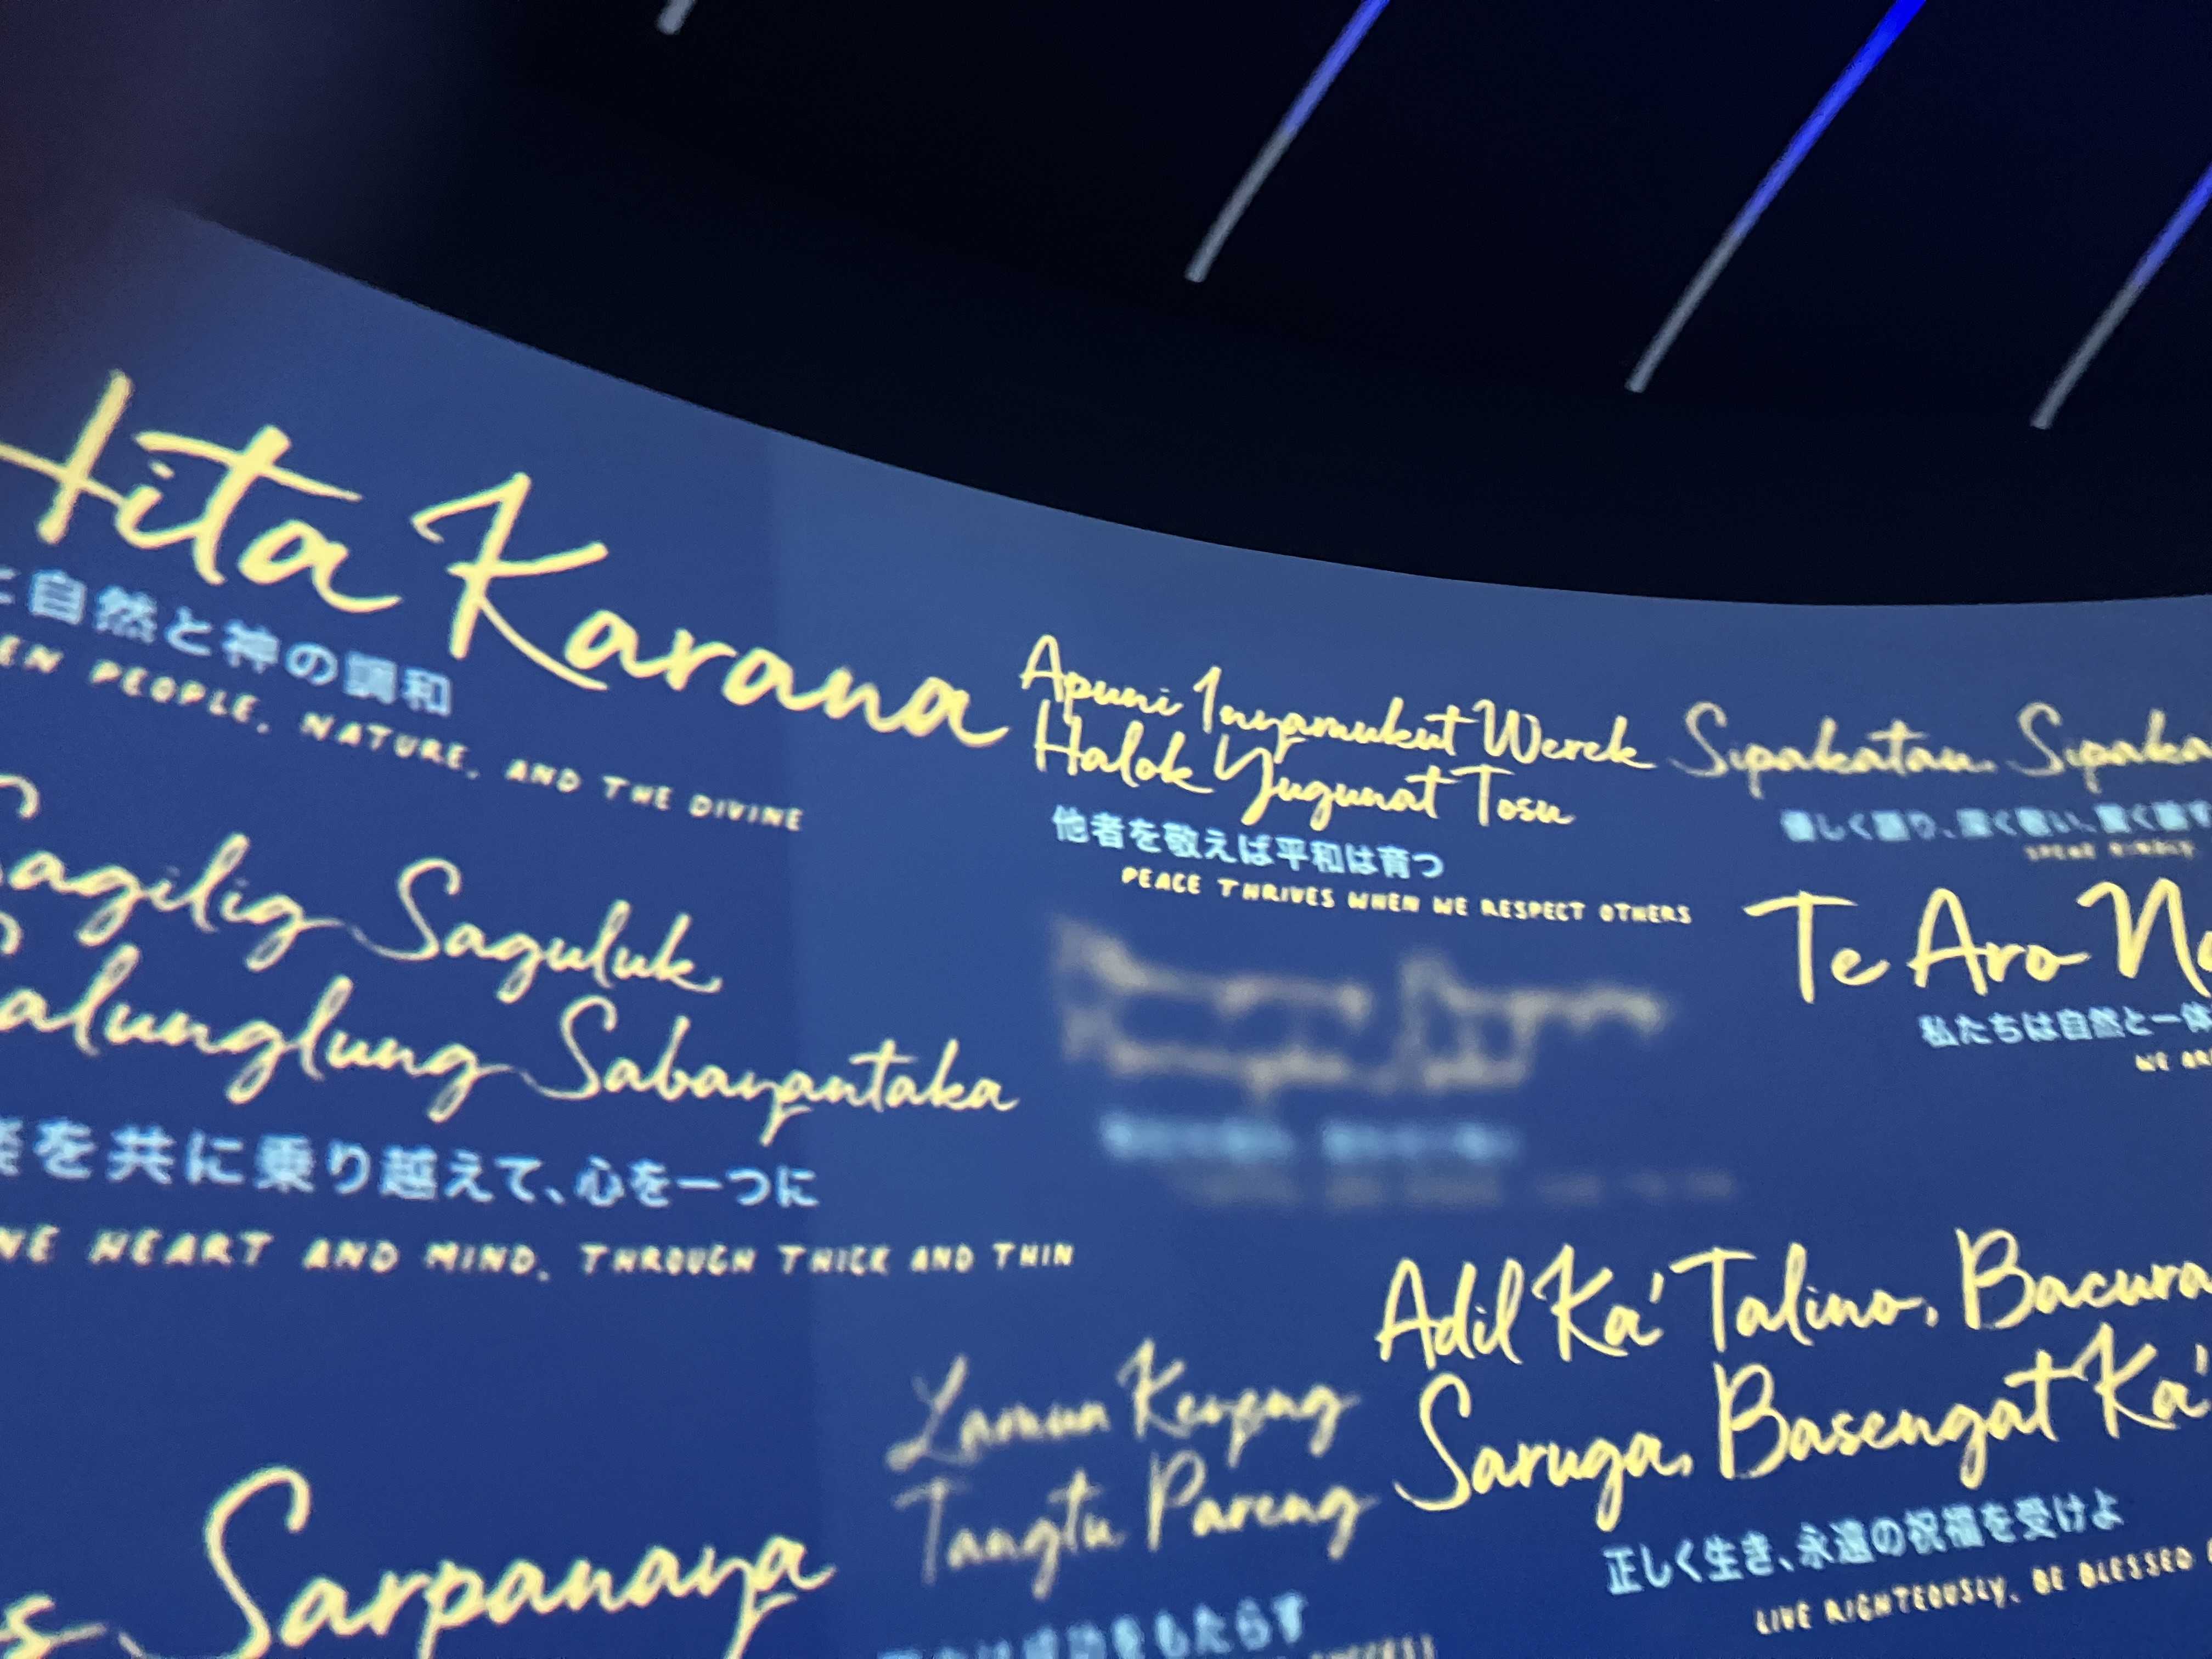 Hita Karana
と自然と神の調和
EN PEOPLE, NATURE, AND THE DIVINE
Sagilig Saguluk
Salunglung Sabayantaka
を共に乗り越えて、心を一つに
NE HEART AND MIND, THROUGH THICK AND THIN
Sarpanaya
Apuni Inyamukut Werek
Halok Yugunat Tosu
他者を敬えば平和は育つ
PEACE THRIVES WHEN WE RESPECT OTHERS
Sipakatau, Sipaka
Te Aro N
私たちは自然と一体
WE ARE
Lamun Keyeng
Tangtu Pareng
をもたらす
Adil Ka' Talino, Bacura
Saruga, Basengat Ka'
正しく生き、永遠の祝福を受けよ
LIVE RIGHTEOUSLY, BE BLESSED